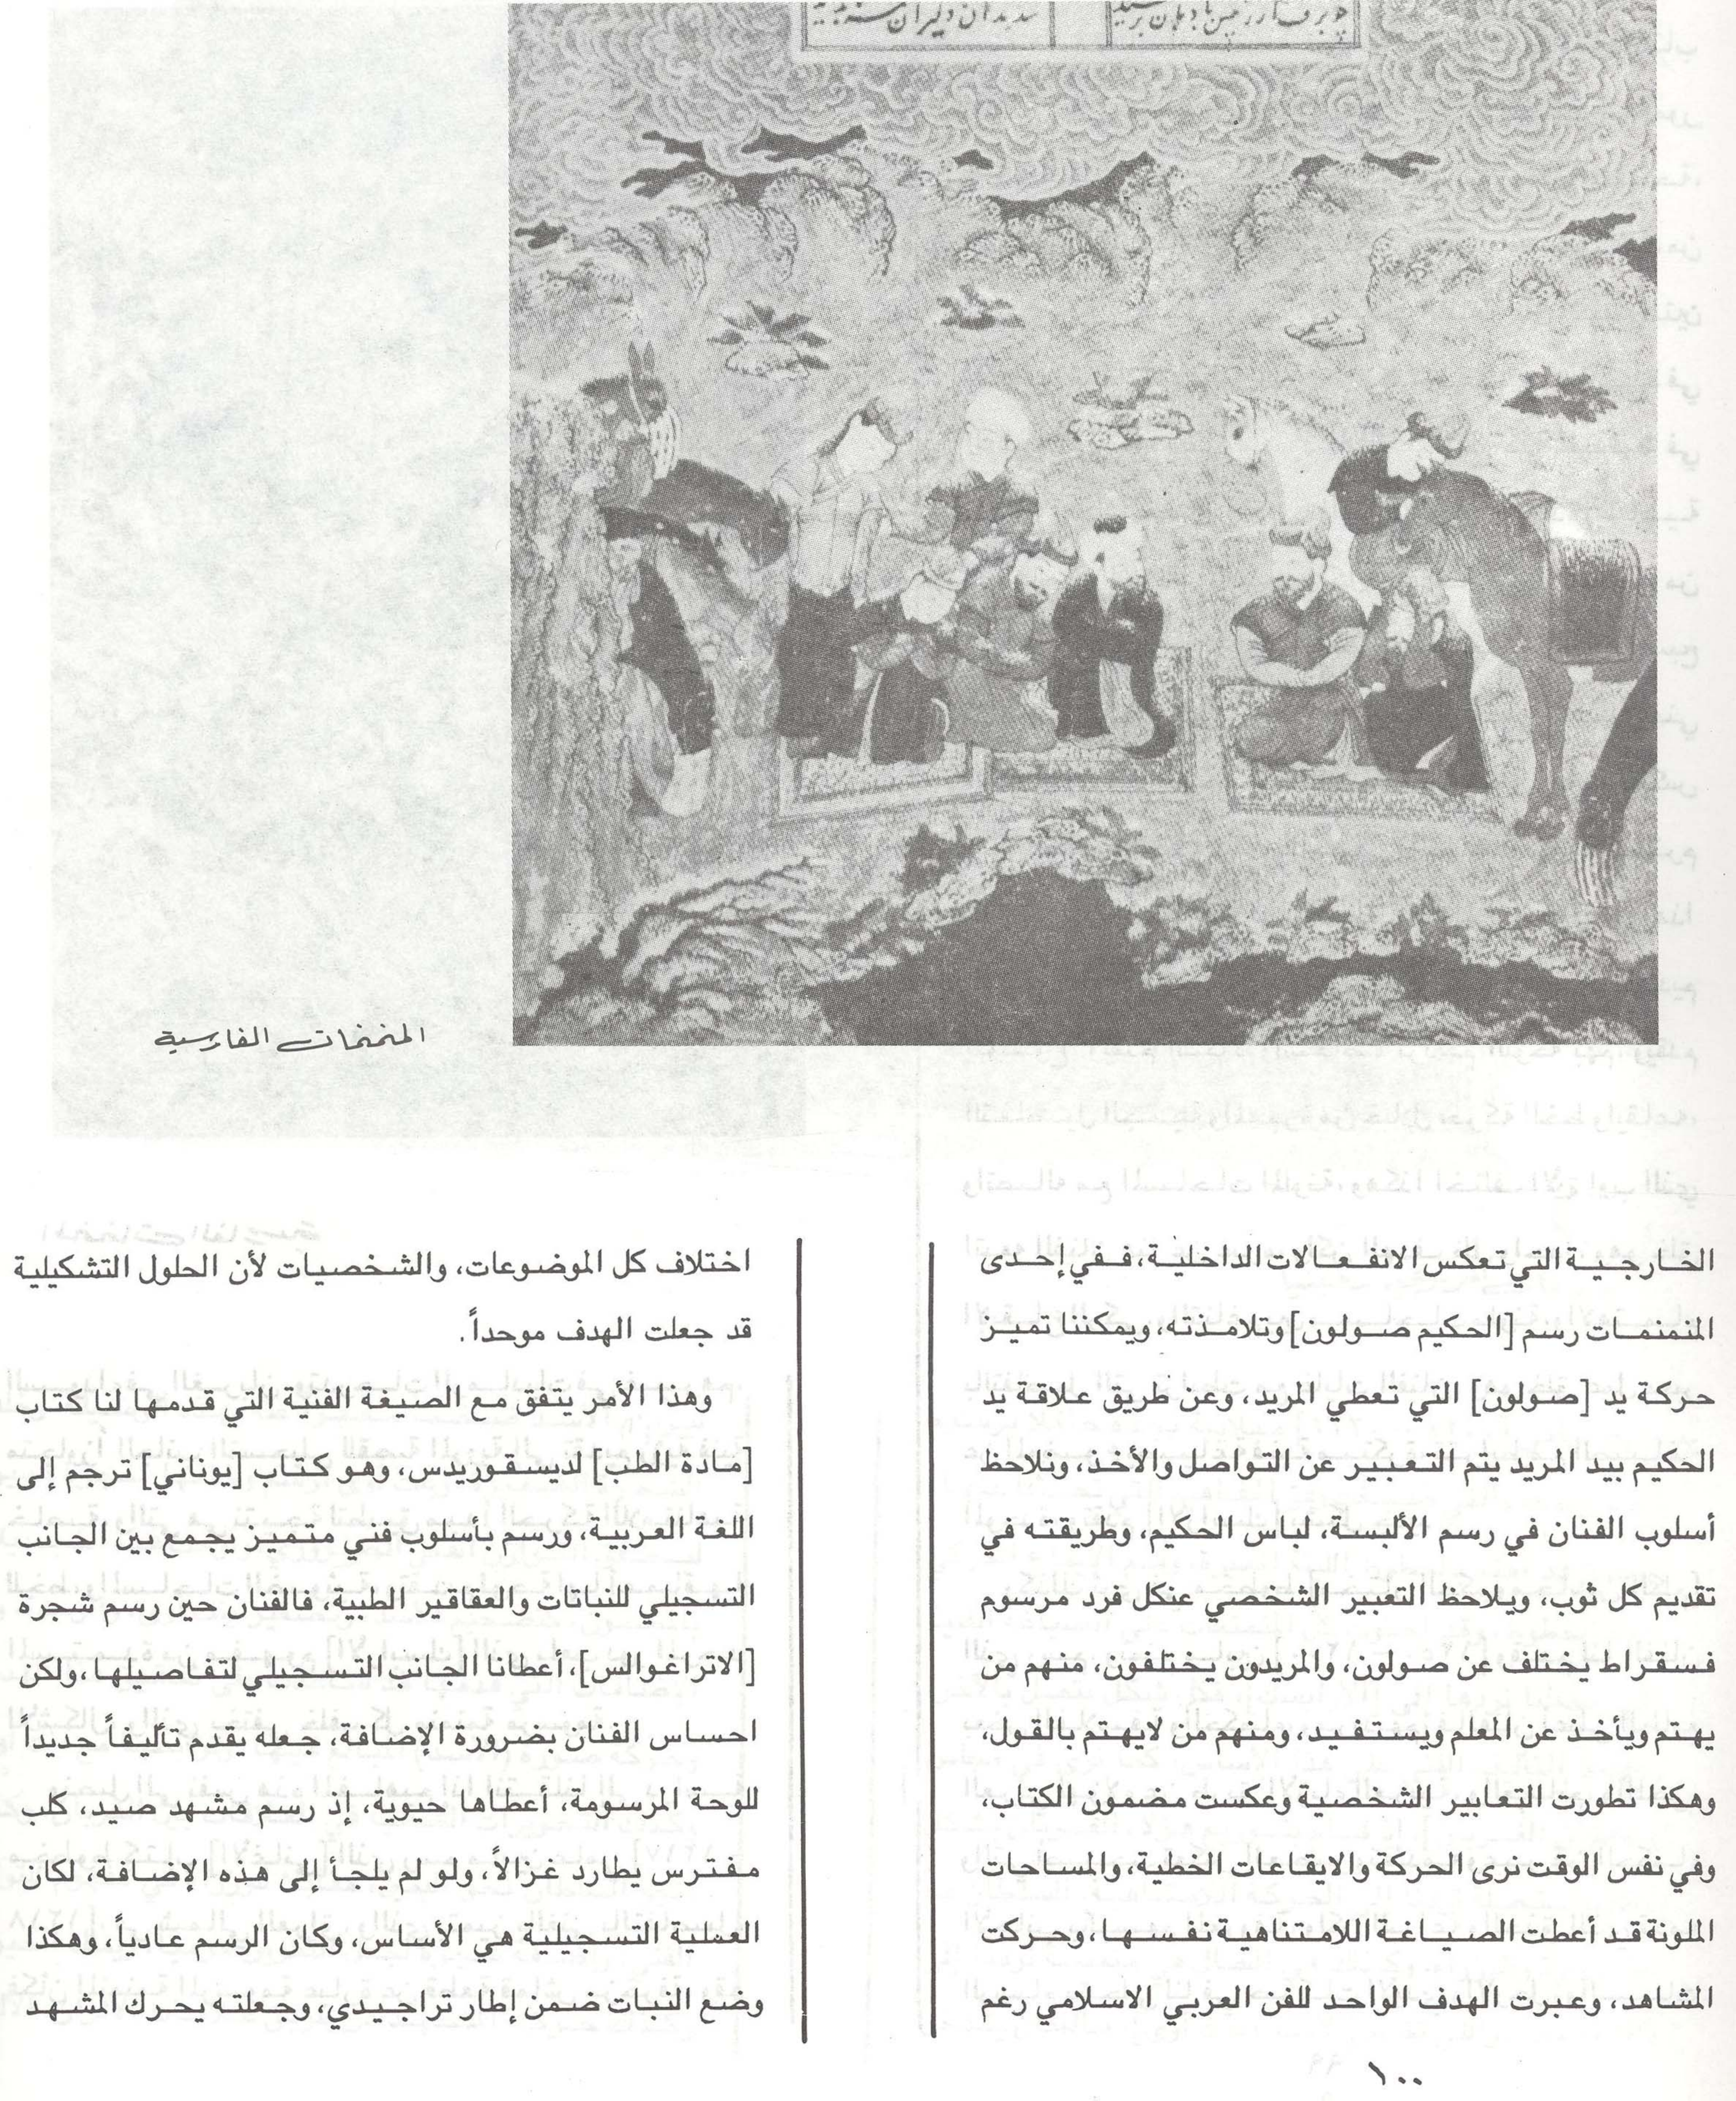 المنمنمات الفارسية
الخارجية التي تعكس الانفعالات الداخلية، ففي إحدى
المنمنمات رسم [الحكيم صولون] وتلامذته، ويمكننا تميز
حركة يد [صولون] التي تعطي المريد، وعن طريق علاقة يد
الحكيم بيد المريد يتم التعبير عن التواصل والأخذ، ونلاحظ
أسلوب الفنان في رسم الألبسة، لباس الحكيم، وطريقته في
تقديم كل ثوب، ويلاحظ التعبير الشخصي عنكل فرد مرسوم
فسقراط يختلف عن صولون، والمريدون يختلفون، منهم من
يهتم ويأخذ عن المعلم ويستفيد، ومنهم من لايهتم بالقول،
وهكذا تطورت التعابير الشخصية وعكست مضمون الكتاب،
وفي نفس الوقت نرى الحركة والايقاعات الخطية، والمساحات
الملونة قد أعطت الصياغة اللامتناهية نفسها، وحركت
المشاهد، وعبرت الهدف الواحد للفن العربي الاسلامي رغم
اختلاف كل الموضوعات، والشخصيات لأن الحلول التشكيلية
قد جعلت الهدف موحداً.
وهذا الأمر يتفق مع الصيغة الفنية التي قدمها لنا كتاب
[مادة الطب] لديسقوريدس، وهو كتاب [يوناني] ترجم إلى
اللغة العربية، ورسم بأسلوب فني متميز يجمع بين الجانب
التسجيلي للنباتات والعقاقير الطبية، فالفنان حين رسم شجرة
[الاتراغوالس]، أعطانا الجانب التسجيلي لتفاصيلها، ولكن
احساس الفنان بضرورة الإضافة، جعله يقدم تأليفاً جديداً
للوحة المرسومة، أعطاها حيوية، إذ رسم مشهد صيد، كلب
مفترس يطارد غزالاً، ولو لم يلجأ إلى هذه الإضافة، لكان
العملية التسجيلية هي الأساس، وكان الرسم عادياً، وهكذا
وضع النبات ضمن إطار تراجيدي، وجعلته يحرك المشهد
١٠٠